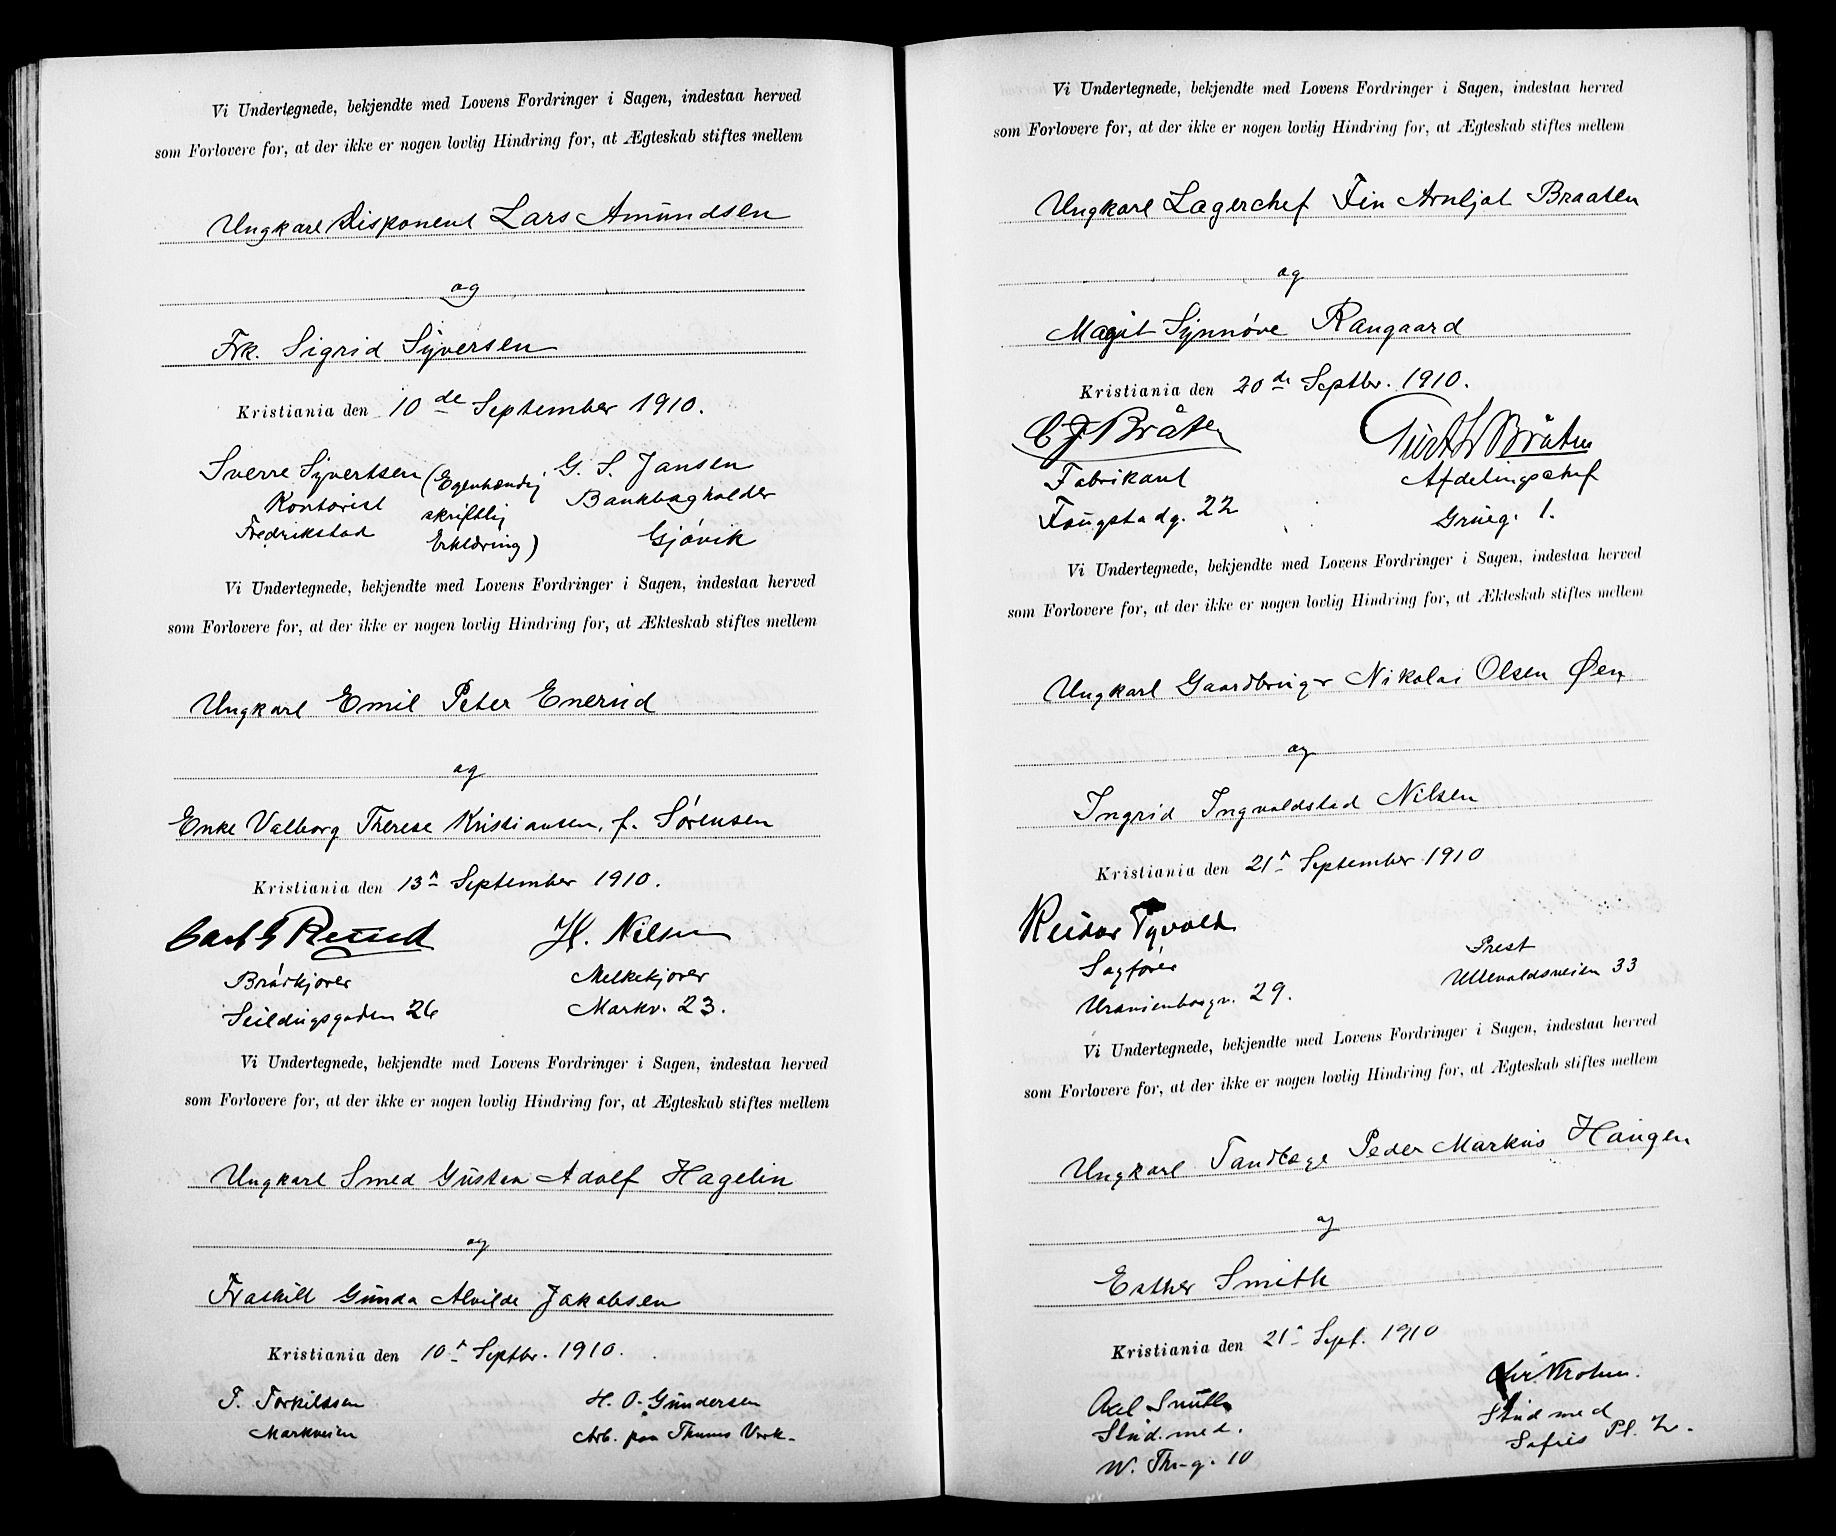 Vi Undertegnede, bekjendte med Lovens Fordringer i Sagen, indestaa herved
som Forlovere for, at der ikke er nogen lovlig Hindring for, at Ægteskab stiftes mellem
Ungkarl Disponent Lars Amundsen
og
Frk. Sigrid Syversen
Kristiania den 10de September 1910.
Sverre Syvertsen (Egenhændig G. S. Jansen
Kontorist skriftlig Bankbogholder
Fredrikstad Erklæring) Gjøvik
Vi Undertegnede, bekjendte med Lovens Fordringer i Sagen, indestaa herved
som Forlovere for, at der ikke er nogen lovlig Hindring for, at Ækteskab stiftes mellem
Ungkarl Emil Peter Enerud
og
Enke Valborg Therese Kristiansen, f. Sørensen
Kristiania den 13de September 1910.
Carl G H. Nilsen
Brødkjører Melkekjører
Seildugsgaden 26 Markv. 23.
Vi Undertegnede, bekjendte med Lovens Fordringer i Sagen, indestaa herved
som Forlovere for, at der ikke er nogen lovlig Hindring for, at Ægteskab stiftes mellem
Ungkarl Smed Gustav Adolf Hagelin
og
Fraskilt Gunda Alvilde Jakobsen
Kristiania den 10de Septbr. 1910.
T. Torkildsen H. O. Gundersen
Markveien Arb. paa Thunes Verk.
Vi Undertegnede, bekjendte med Lovens Fordringer i Sagen, indestaa herved
som Forlovere for, at der ikke er nogen lovlig Hindring for, at Ægteskab stiftes mellem
Ungkarl Lagerchef Fin Arnljot Braaten
og
Magit Synnøve Rangaard
Kristiania den 20de Septbr. 1910.
C J Bråten Bråten
Fabrikant Afdelingschef
Fougstadg. 22 Grueg. 1.
Vi Undertegnede, bekjendte med Lovens Fordringer i Sagen, indestaa herved
som Forlovere for, at der ikke er nogen lovlig Hindring for, at Ækteskab stiftes mellem
Ungkarl Gaardbruger Nikolai Olsen Øen
og
Ingrid Ingvaldstad Nilsen
Kristiania den 21de September 1910
Reidar Tyvold Prest
Sagfører Ullevoldsveien 33
Uranienborgv. 29.
Vi Undertegnede, bekjendte med Lovens Fordringer i Sagen, indestaa herved
som Forlovere for, at der ikke er nogen lovlig Hindring for, at Ægteskab stiftes mellem
Ungkarl Tandlæge Peder Markus Haugen
og
Esther Smith
Kristiania den 21de Sept. 1910
Axel Smith
Stud. med. Stud med
W. Thr.g. 10 Sofies Pl. 2.